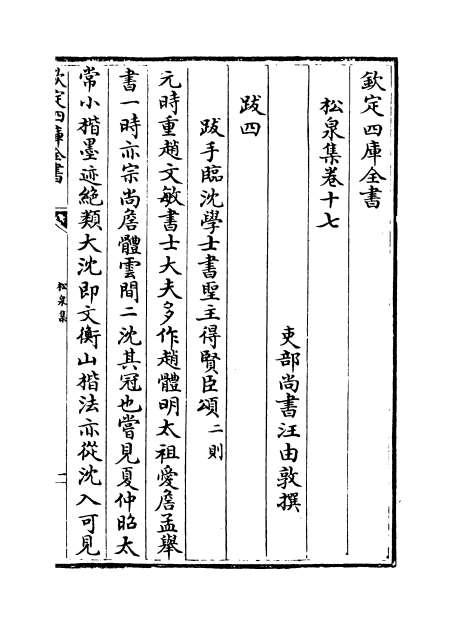 欽定四庫全書
松泉集卷十七
吏部尚書汪由敦撰
跋四
跋手臨沈學士書聖主得賢臣頌二則
元時重趙文敏書士大夫多作趙體明太祖愛詹孟舉
書一時亦宗尚詹體雲間二沈其冠也嘗見夏仲昭太
常小楷墨迹絶類大沈即文衡山楷法亦從沈入可見
欽定四庫全書
松泉集